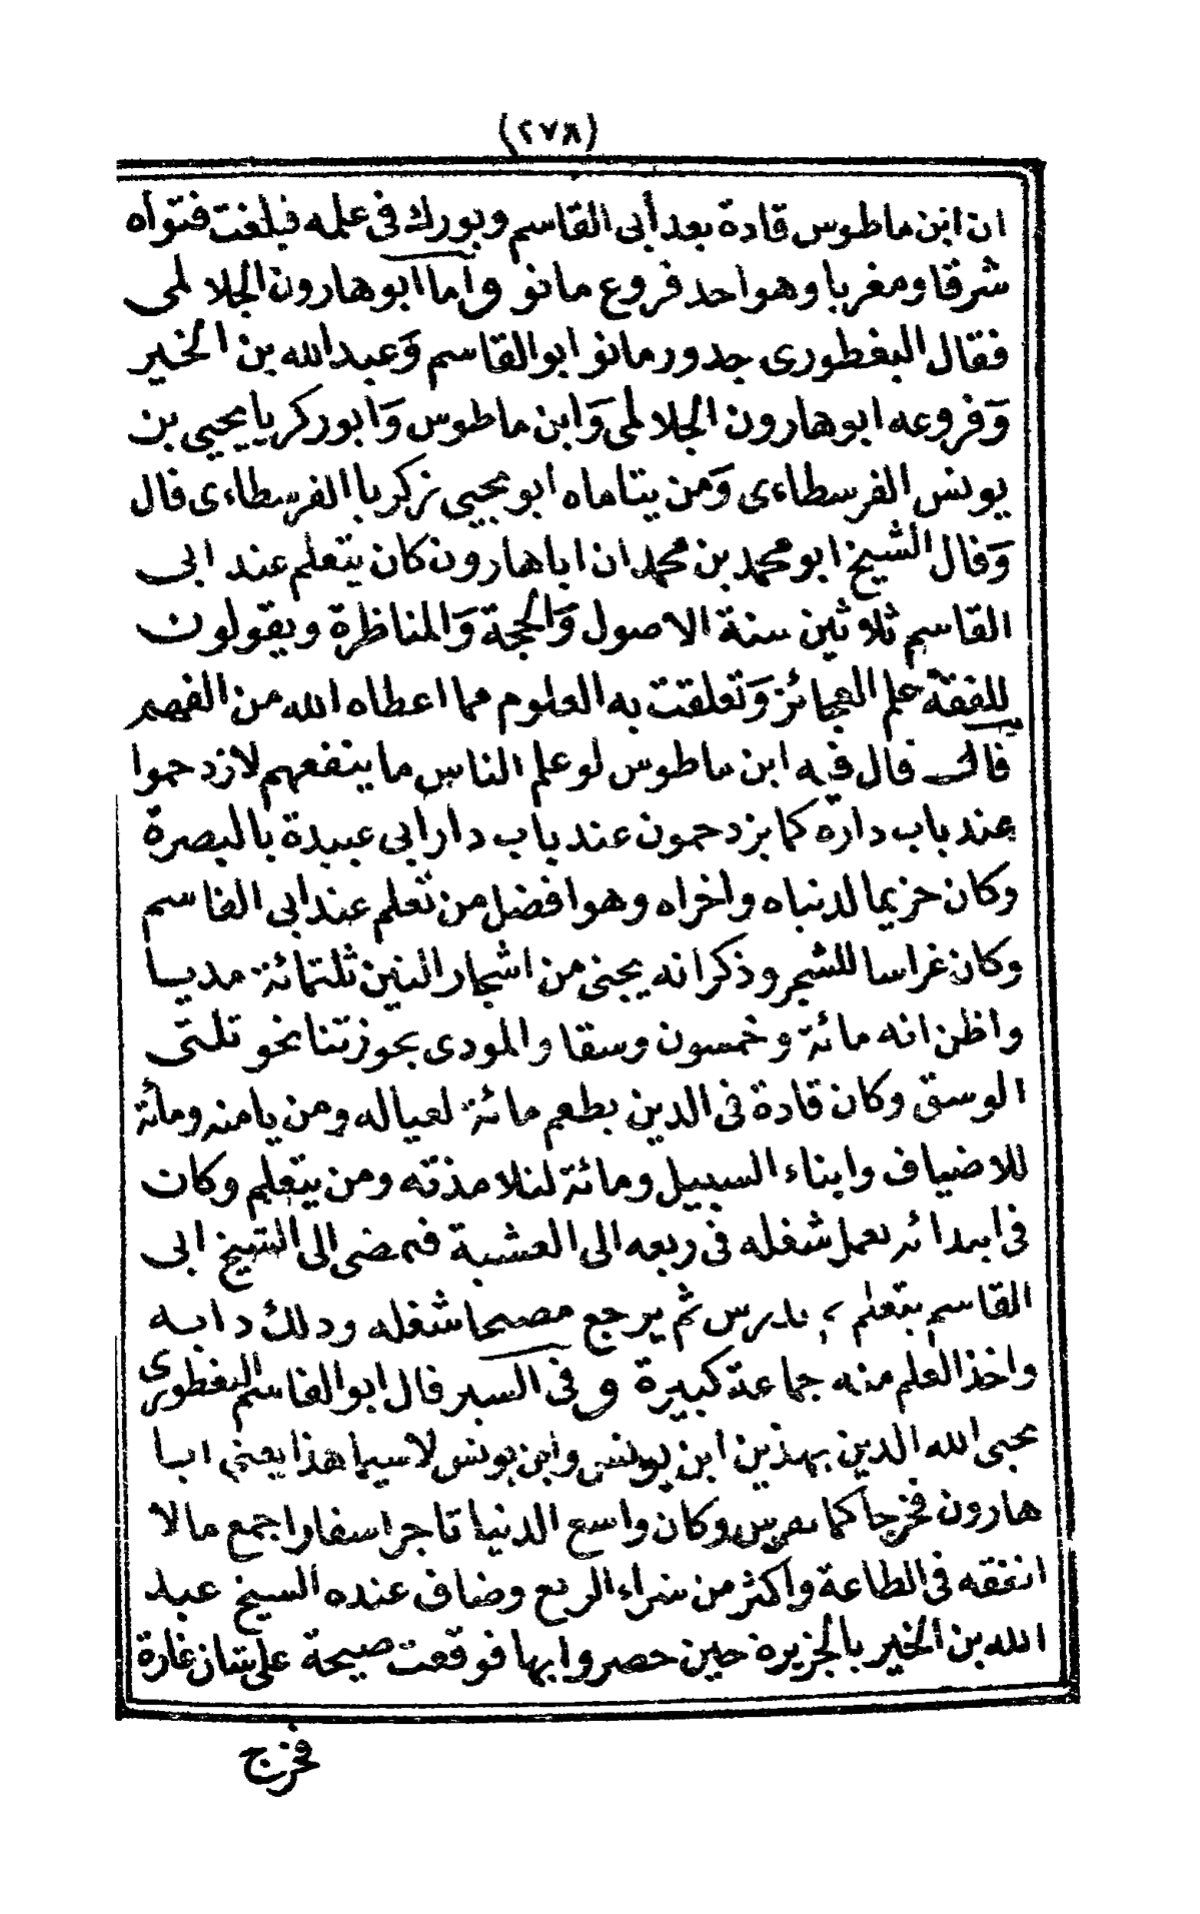 (٢٧٨)
ان ابن ماطوس قادة بعد أبى القاسم وبورك فى علمه فبلغت فتواه
شرقا ومغربا وهو احد فروع مانو واما ابو هارون الجلالمى
فقال البغطورى جدور مانو ابو القاسم وَعبد الله بن الخير
وَفروعه ابو هارون الجلالمى وَابن ماطوس وَابو زكريا يحيى بن
يونس الفرسطاءى وَمن يتاماه ابو يحيى زكريا الفرسطاءى قال
وَقال الشيخ ابو محمد بن محمد ان ابا هارون كان يتعلم عند ابى
القاسم ثلاثين سنة الاصول وَالحجة وَالمناظرة ويقولون
للفقه علم العجائز وَتعلقت به العلوم مما اعطاه الله من الفهم
قال قال فيه ابن ماطوس لو علم الناس ما ينفعهم لازدحموا
عند باب داره كما يزدحمون عند باب دار أبى عبيدة بالبصرة
وكان حزيما لدنياه واخراه وهو افضل من تعلم عند ابى القاسم
وكان غراسا للشجر وذكر انه يجنى من اشجار التين ثلثمائة مديا
واظن انه مائة وخمسون وسقا والمودى بحوزتنا نحو ثلثى
الوسق وكان قادة فى الدين يطعم مائة لعياله ومن يامنه ومأئة
للاضياف وابناء السبيل ومائة لتلامذته ومن يتعلم وكان
فى ابتدائه يعمل شغله فى ربعه الى العشية فيمضى الى الشيخ ابى
القاسم يتعلم يدرس ثم يرجع مصبحا شغله وذلك دابه
واخذ العلم منه جماعة كبيرة وفى السير قال ابو القاسم البغطورى
يحيى الله الدين بهذين ابن يونس وابن يونس لاسيما هذا يعنى ابا
هارون فخرجا كما تفرس وكان واسع الدنيا تاجر اسفار اجمع مالا
انفقه فى الطاعة واكثر من شراء الربع وضاف عنده الشيخ عبد
الله بن الخير بالجزيرة حين حصروا بها فوقعت صيحة على شان غارة
فخرج